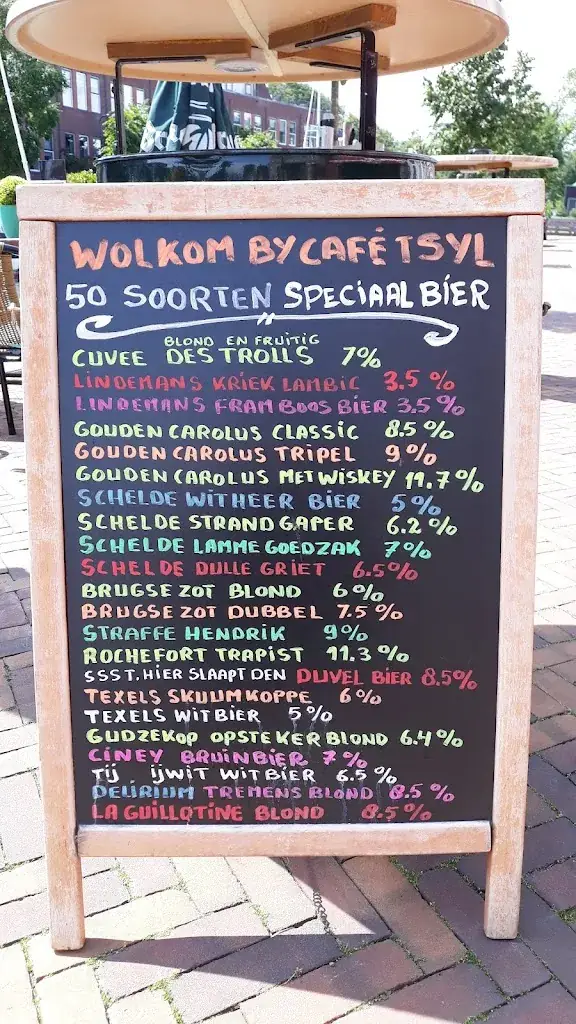 WOLKOM BY CAFÉ TSYL
50 SOORTEN SPECIAALBIER
BLOND EN FRUITIG
CUVEE DES TROLLS 7%
LINDEMANS KRIEK LAMBIC 3.5%
LINDEMANS FRAMBOOS BIER 3.5%
GOUDEN CAROLUS CLASSIC 8.5%
GOUDEN CAROLUS TRIPEL 9%
GOUDEN CAROLUS MET WISKEY 11.7%
SCHELDE WITHEER BIER 5%
SCHELDE STRANDGAPER 6.2%
SCHELDE LAMME GOEDZAK 7%
SCHELDE DULLE GRIET 6.5%
BRUGSE ZOT BLOND 6%
BRUGSE ZOT DUBBEL 7.5%
STRAFFE HENDRIK 9%
ROCHEFORT TRAPIST 11.3%
SSST, HIER SLAAPT DEN DUVEL BIER 8.5%
TEXELS SKUUMKOPPE 6%
TEXELS WITBIER 5%
GUDZEKOP OPSTEKER BLOND 6.4%
CINEY BRUINBIER 7%
TIJ IJWIT WITBIER 6.5%
DELIRIUM TREMENS BLOND 8.5%
LA GUILLOTINE BLOND 8.5%